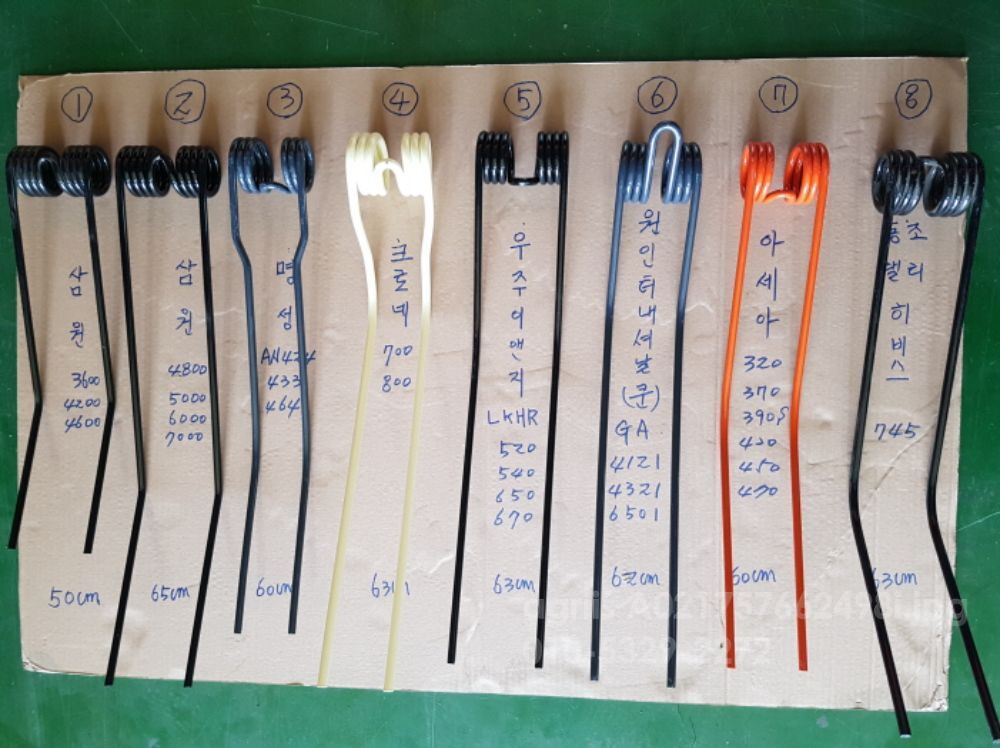 ①
삼원
3600
4200
4600
50cm
②
삼원
4800
5000
6000
7000
65cm
③
명성
AN424
433
464
60cm
④
크로네
700
800
63cm
⑤
우주이앤지
LKHR
520
540
650
670
63cm
⑥
원인터내셔날
(쿤)
GA
4121
4321
6501
62cm
⑦
아세아
320
370
390S
420
450
470
60cm
⑧
동조
델리히비스
745
63cm